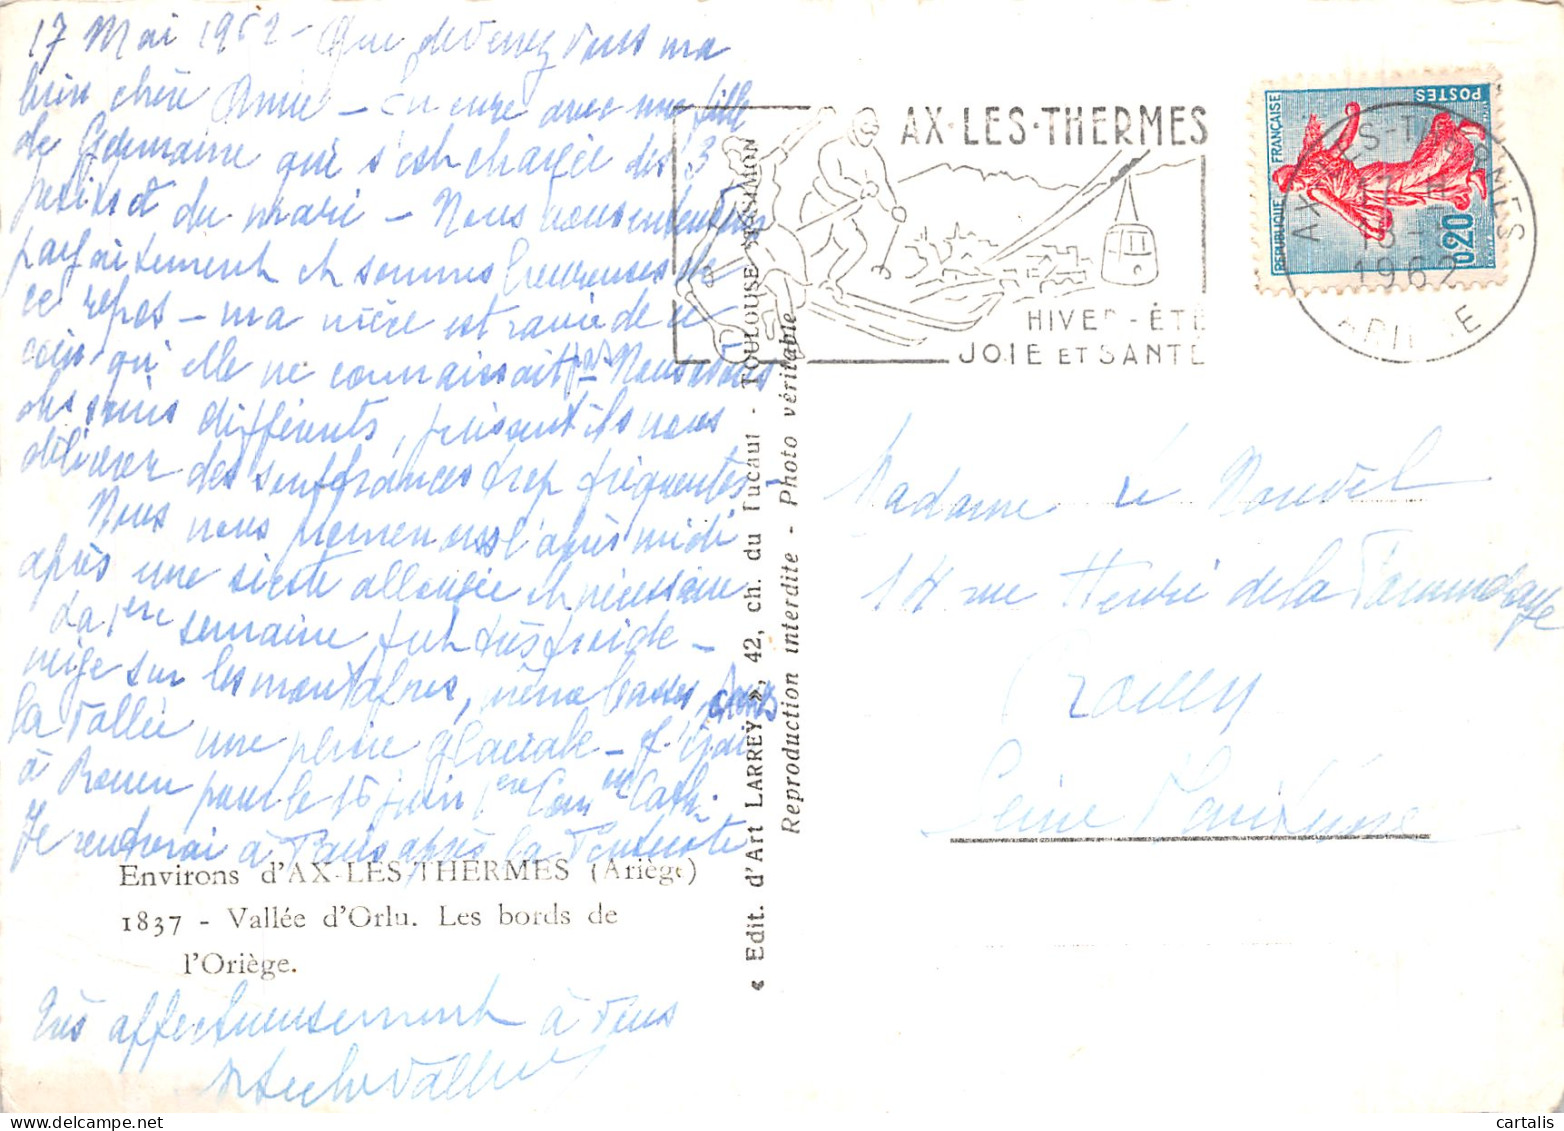 17 Mai 1962 - Que devenez vous ma
bien chère Amie - En cure avec une fille
de Germaine qui s'est chargée des 3
petits et du mari - Nous nous entendons
parfaitement et sommes heureuses de
ce repos - ma nièce est ravie de ce
coin qu'elle ne connaissait pas - Nous avons
des soins différents, puissent ils nous
délivrer des souffrances trop fréquentes -
Nous nous promenons l'après midi
après une sieste allongée et nécessaire
La 1ère semaine fut très froide -
neige sur les montagnes, même basses, dans
la vallée une pluie glaciale -
à Rouen pour le 16 juin 1ère Com
Je rentrerai à Paris après la Pentecôte
Environs d'AX-LES-THERMES (Ariège)
1837 - Vallée d'Orlu. Les bords de
l'Oriège.
Très affectueusement à vous
« Edit. d'Art LARREY », 42, ch. du Tucaut - TOULOUSE-MASIMON
Reproduction interdite - Photo véritable
AX·LES·THERMES
HIVER - ÉTÉ
JOIE ET SANTÉ
REPUBLIQUE FRANÇAISE
POSTES
0,20
AX-LES-THERMES
17 H
1962
ARIEGE
Madame Le Nouvel
14 rue Henri de la
Rouen
Seine Maritime
cartalis